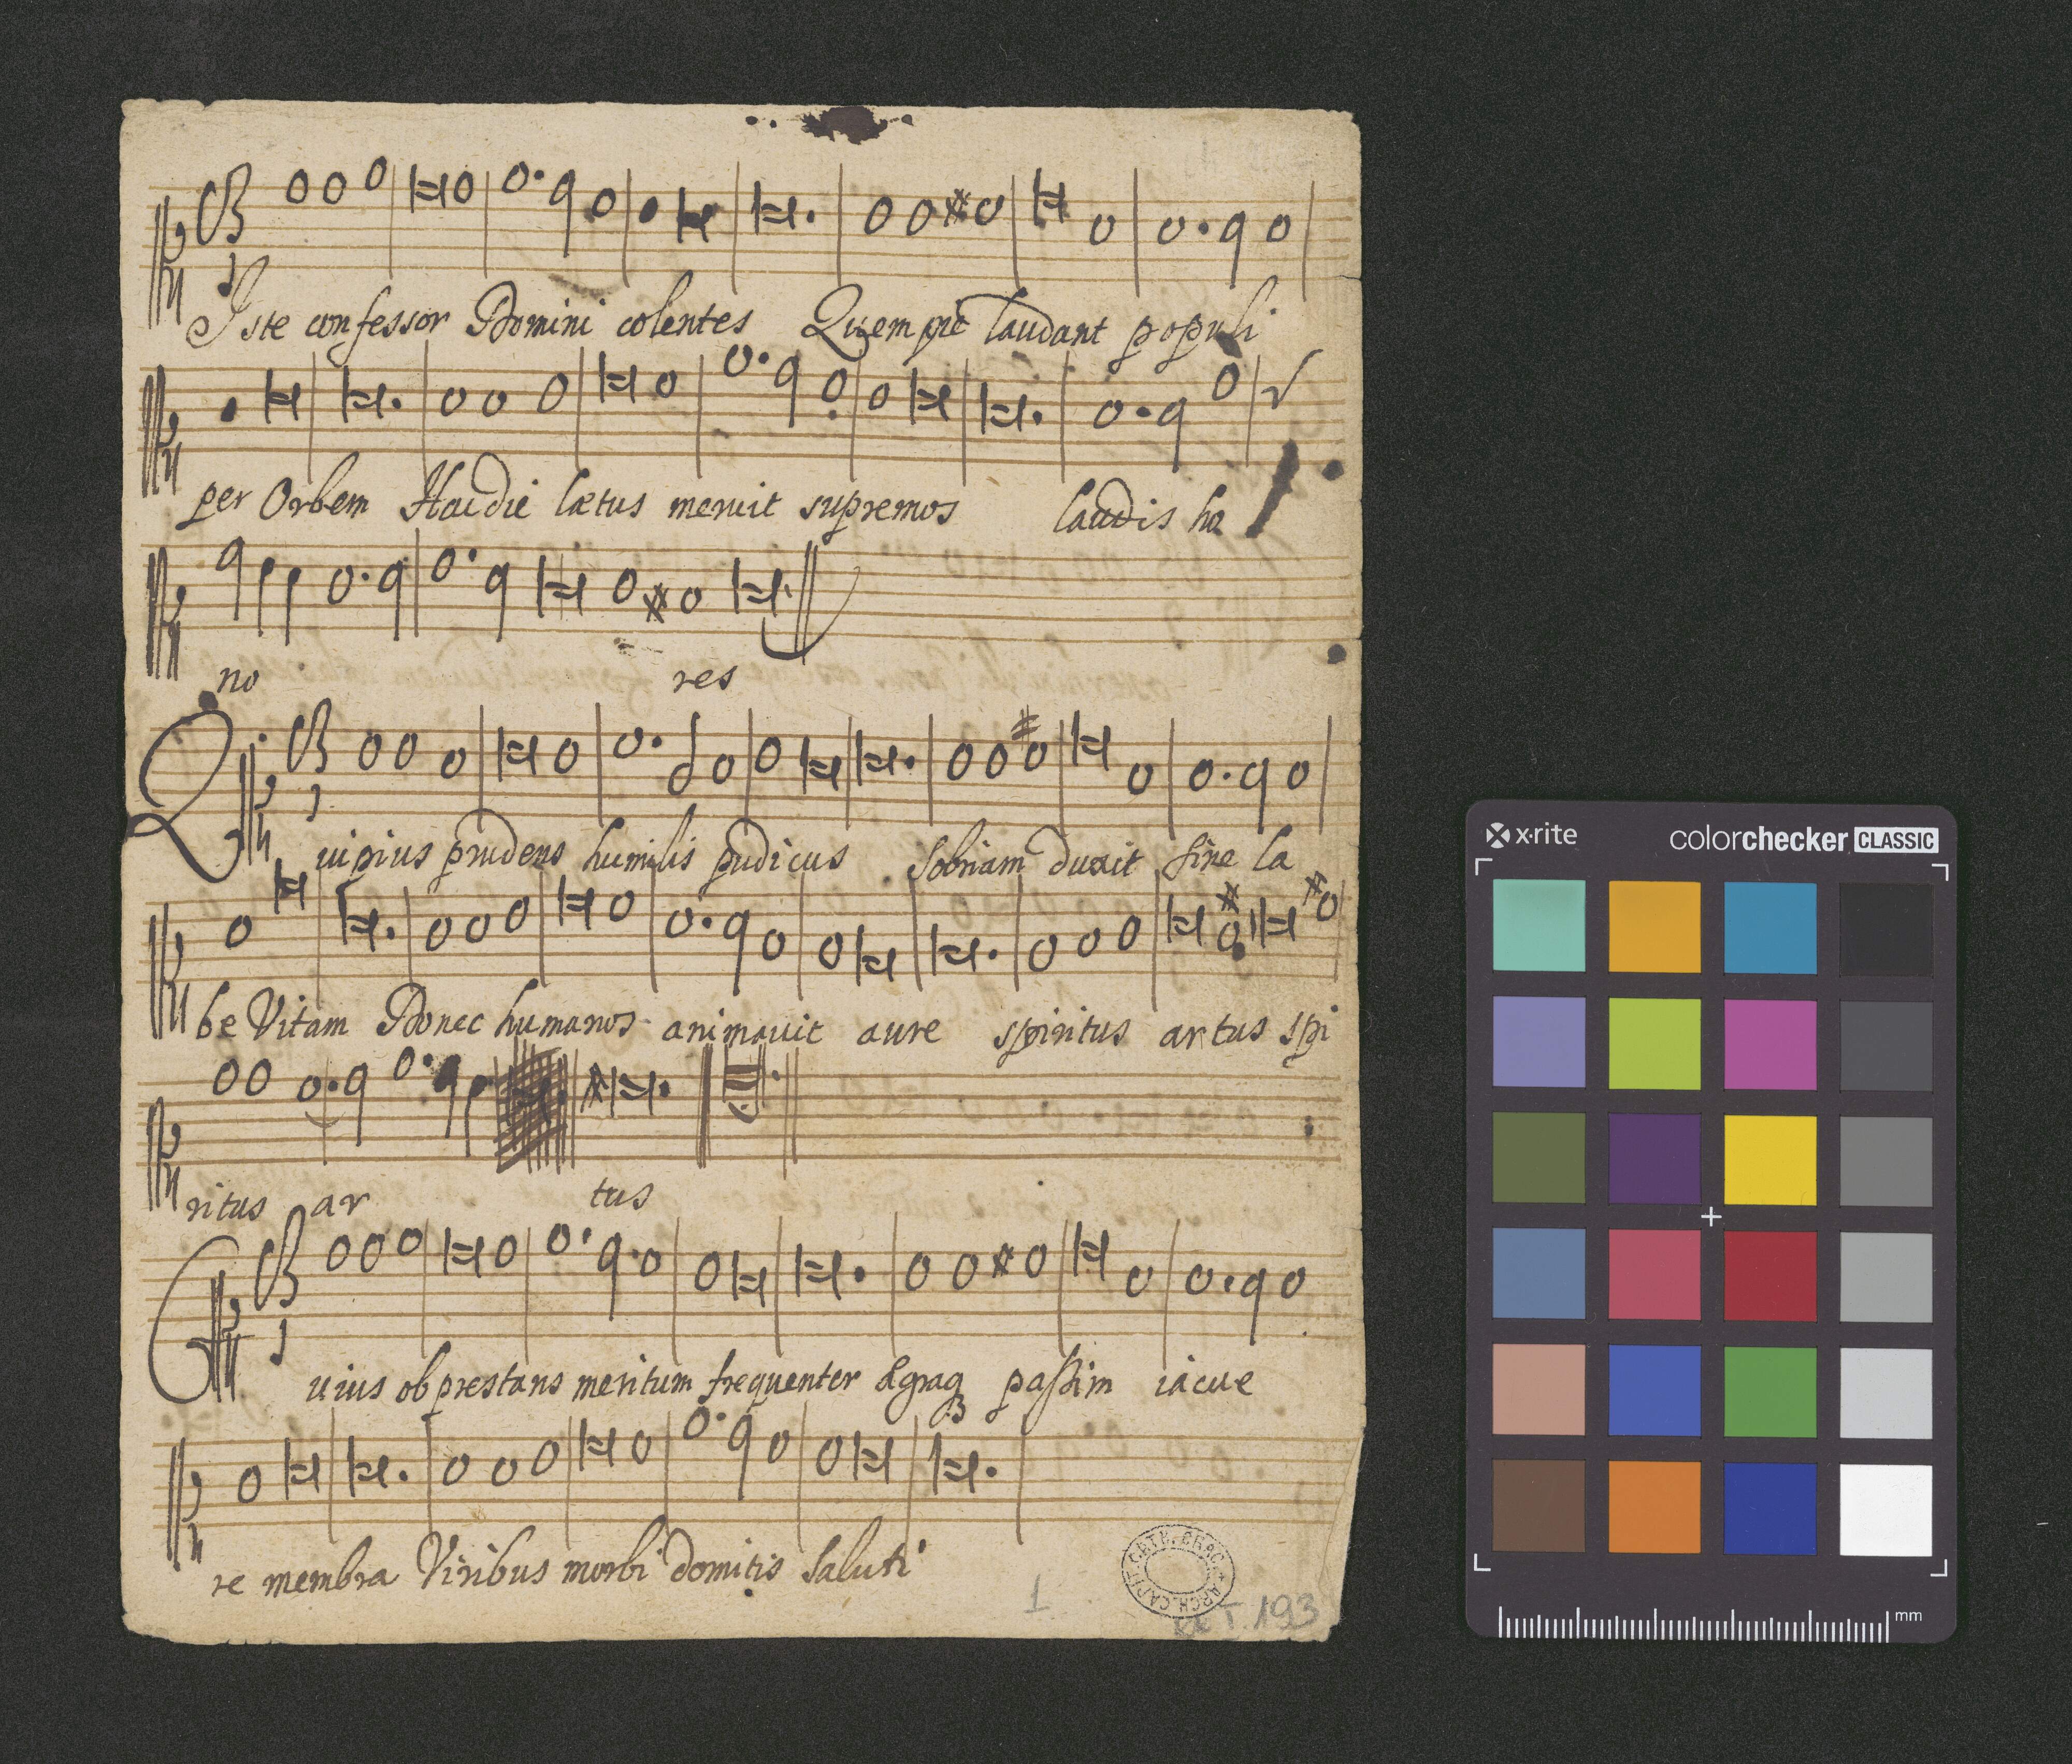 Iste confessor Domini colentes Quem pie laudant populi
per Orbem Hac die lætus meruit supremos laudis ho
no res
Qui pius prudens humilis pudicus Sobriam duxit sine la
be Vitam Donec humanos animavit aure spiritus artus spi
ritus ar tus
Cuius ob prestans meritum frequenter Ægraq passim iacue
re membra Viribus morbi domitis saluti
1
ARCH. CAPIT. CATH. CRAC.
193
x·rite colorchecker CLASSIC
mm